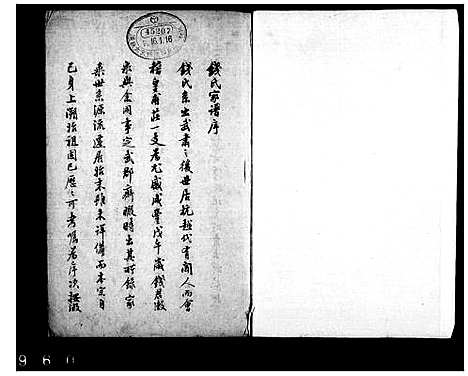 錢氏家譜序
錢氏系出武肅之後世居杭越代有聞人而會
稽皇甫莊一支為尤盛咸豐戊午歲錢君澂
泉與余同事定武郡齋暇時出其所錄家
乘世系源流遷居始末頗未詳備而本宗自
己身上溯始祖固已歷歷可考囑為序次按澂
45207
16.1.16
960